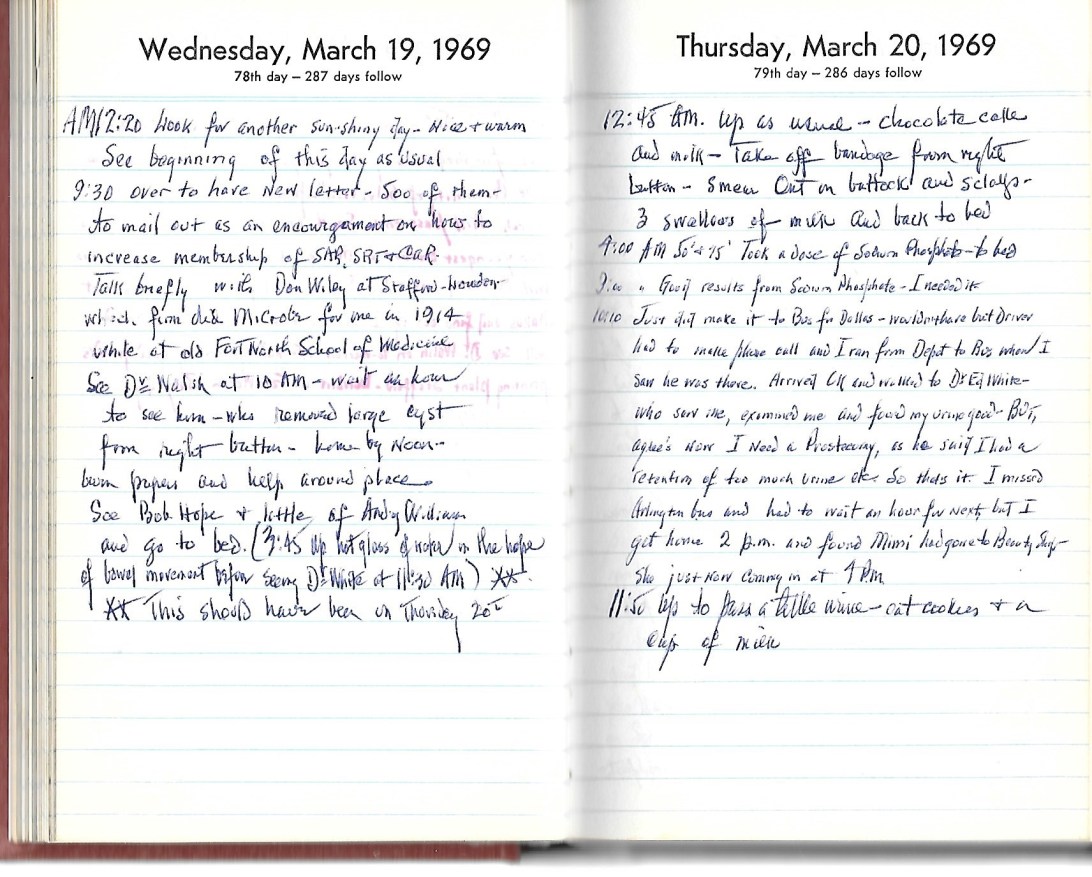 Wednesday, March 19, 1969
78th day – 287 days follow
AM 12:20 Look for another sun-shiny day - Nice + warm
See beginning of this day as usual
9:30 over to have New letter - 500 of them-
to mail out as an encourgement on how to
increase membership of SAR, SRT + CAR.
Talk briefly with Don Wiley at Stafford-Lowdon-
which firm did Microbe for me in 1914
while at old Fort Worth School of Medicine
See Dr Walsh at 10 AM - wait an hour
to see him - who removed large cyst
from right button - home by Noon--
burn papers and help around place.
See Bob Hope + little of Andy William
and go to bed. (3:45 up hot glass of water in the hope
of bowel movement before seeing Dr White at 11:30 AM) **.
** This should have been on Thursday 20th
Thursday, March 20, 1969
79th day – 286 days follow
12:45 AM. up as usual - chocolate cake
and milk - Take off bandage from right
button - smear out on buttock and
3 swallows of milk and back to bed
4:00 AM Took a dose of Sodium Phosphate - to bed
9:00 " Good results from Sodium Phosphate - I needed it
10:10 Just did make it to Bus for Dallas - wouldn't have but Driver
had to make phone call and I ran from Depot to Bus when I
saw he was there. Arrived OK and walked to Dr Ed White-
who saw me, examined me and found my urine good - BUT,
agree's Now I Need a as he said I had a
retention of too much urine etc. So thats it. I missed
Arlington bus and had to wait an hour for next, but I
got home 2 p.m. and found Mimi had gone to Beauty Shop-
She just now coming in at 4 PM
11:50 up to pass a little urine - eat cookies + a
cup of milk